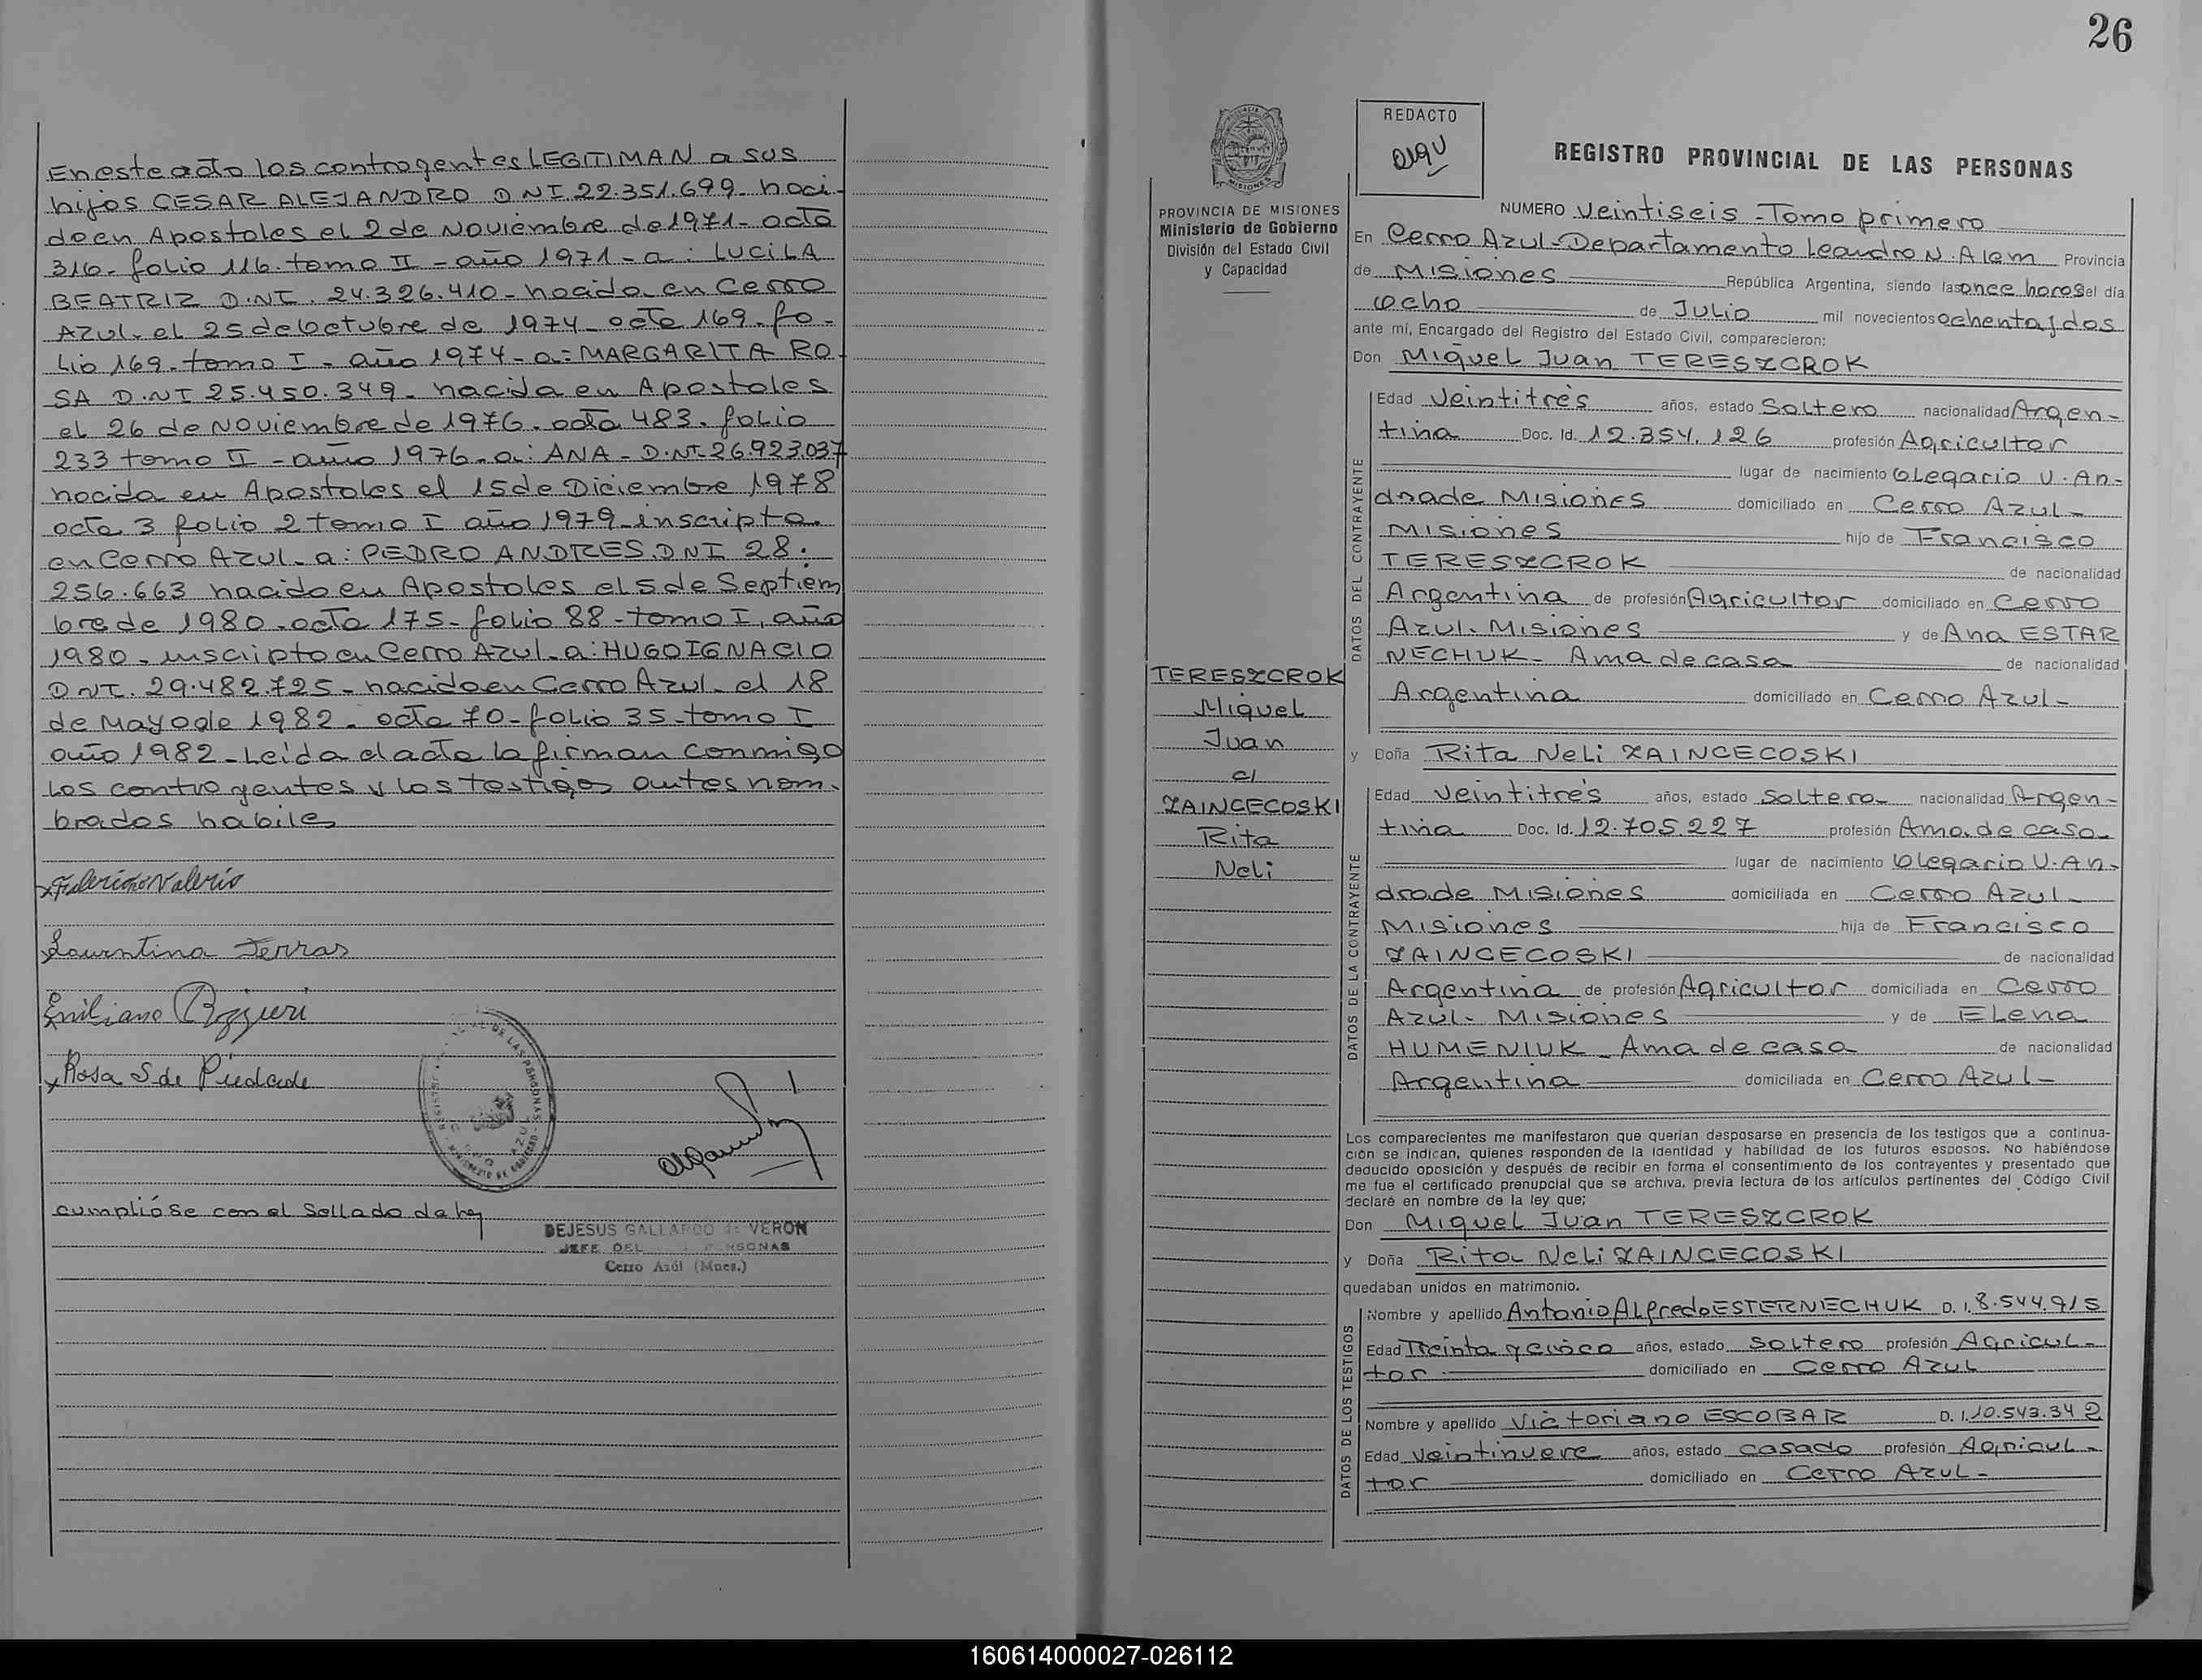 En este acto los contrayentes LEGITIMAN a sus
hijos CESAR ALEJANDRO D.N.I. 22.351.699- naci-
do en Apostoles el 2 de Noviembre de 1971- acta
316- folio 116- tomo II - año 1971 - a: LUCILA
BEATRIZ D.N.I. 24.326.410- nacida en Cerro
Azul- el 25 de Octubre de 1974- acta 169- fo-
lio 169- tomo I - año 1974 - a: MARGARITA RO
SA D.N.I 25.450.349- nacida en Apostoles
el 26 de Noviembre de 1976- acta 483- folio
233 tomo II - año 1976- a: ANA - D.N.I- 26.923.037
nacida en Apostoles el 15 de Diciembre 1978
acta 3 folio 2 tomo I año 1979- inscripta
en Cerro Azul- a: PEDRO ANDRES. DNI 28.
256.663 nacido en Apostoles el 5 de Septiem
bre de 1980- acta 175- folio 88- tomo I, año
1980- inscripto en Cerro Azul- a: HUGO IGNACIO
D.N.I. 29.482.725- nacido en Cerro Azul- el 18
de Mayo de 1982- acta 70- folio 35- tomo I
año 1982- Leida el acta la firman conmigo
los contrayentes y los testigos antes nom-
brados habiles
Valerio
Laurentina Ferras
Emiliano
Rosa S de Piedade
cumplióse con el Sellado de ley
DEJESUS GALLARDO de VERON
JEFE DEL PERSONAS
Cerro Azúl (Mnes.)
26
REDACTO
REGISTRO PROVINCIAL DE LAS PERSONAS
PROVINCIA DE MISIONES
Ministerio de Gobierno
División del Estado Civil
y Capacidad
NUMERO Veintiseis - Tomo primero
En Cerro Azul - Departamento Leandro N. Alem Provincia
de Misiones República Argentina, siendo las once horas el día
ocho de Julio mil novecientos ochenta y dos
ante mí, Encargado del Registro del Estado Civil, comparecieron:
Don Miguel Juan TERESZCROK
DATOS DEL CONTRAYENTE
Edad Veintitres años, estado Soltero nacionalidad Argen-
tina Doc. Id. 12.354.126 profesión Agricultor
lugar de nacimiento Olegario V. An-
drade Misiones domiciliado en Cerro Azul-
Misiones hijo de Francisco
TERESZCROK de nacionalidad
Argentina de profesión Agricultor domiciliado en Cerro
Azul- Misiones y de Ana ESTAR
NECHUK- Ama de casa de nacionalidad
Argentina domiciliado en Cerro Azul-
TERESZCROK
Miguel
Juan
c/
ZAINCECOSKI
Rita
Neli
y Doña Rita Neli ZAINCECOSKI
DATOS DE LA CONTRAYENTE
Edad Veintitrés años, estado soltera- nacionalidad Argen-
tina Doc. Id. 12.705.227 profesión Ama de casa-
lugar de nacimiento Olegario V. An-
drade Misiones domiciliada en Cerro Azul-
Misiones hija de Francisco
ZAINCECOSKI de nacionalidad
Argentina de profesión Agricultor domiciliada en Cerro
Azul- Misiones y de Elena
HUMENIUK- Ama de casa de nacionalidad
Argentina domiciliada en Cerro Azul-
Los comparecientes me manifestaron que querían desposarse en presencia de los testigos que a continua-
ción se indican, quienes responden de la identidad y habilidad de los futuros esposos. No habiéndose
deducido oposición y después de recibir en forma el consentimiento de los contrayentes y presentado que
me fue el certificado prenupcial que se archiva, previa lectura de los artículos pertinentes del Código Civil
declaré en nombre de la ley que;
Don Miguel Juan TERESZCROK
y Doña Rita Neli ZAINCECOSKI
quedaban unidos en matrimonio.
DATOS DE LOS TESTIGOS
Nombre y apellido Antonio Alfredo ESTERNECHUK D. I. 8.544.915
Edad Treinta y cinco años, estado soltero profesión Agricul-
tor domiciliado en Cerro Azul
Nombre y apellido Victoriano ESCOBAR D. I. 10.543.342
Edad Veintinueve años, estado casado profesión Agricul-
tor domiciliado en Cerro Azul-
160614000027-026112